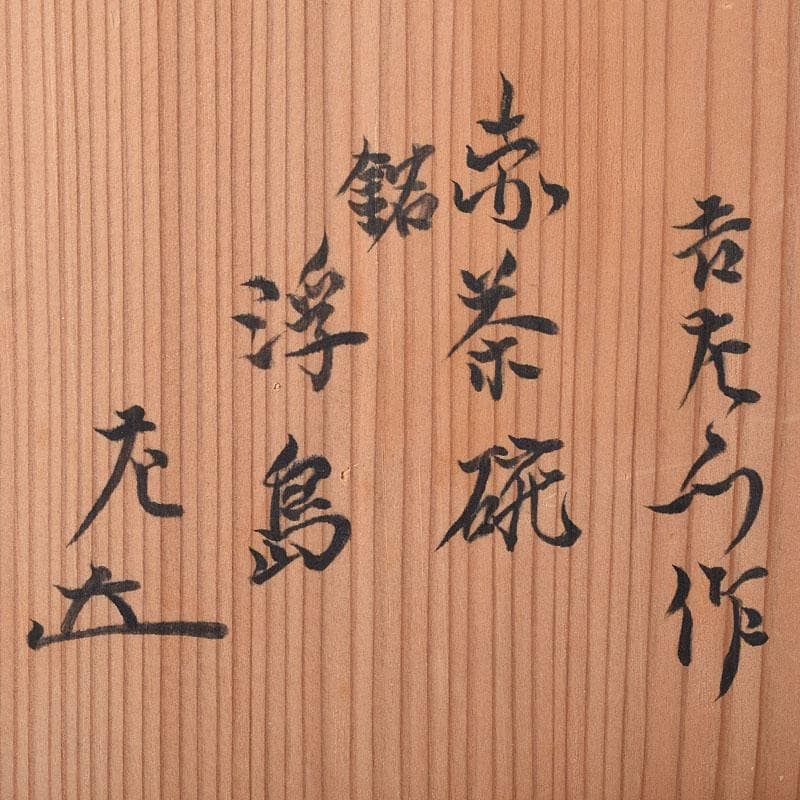 吉左衛門作
赤茶碗
銘
浮島
左